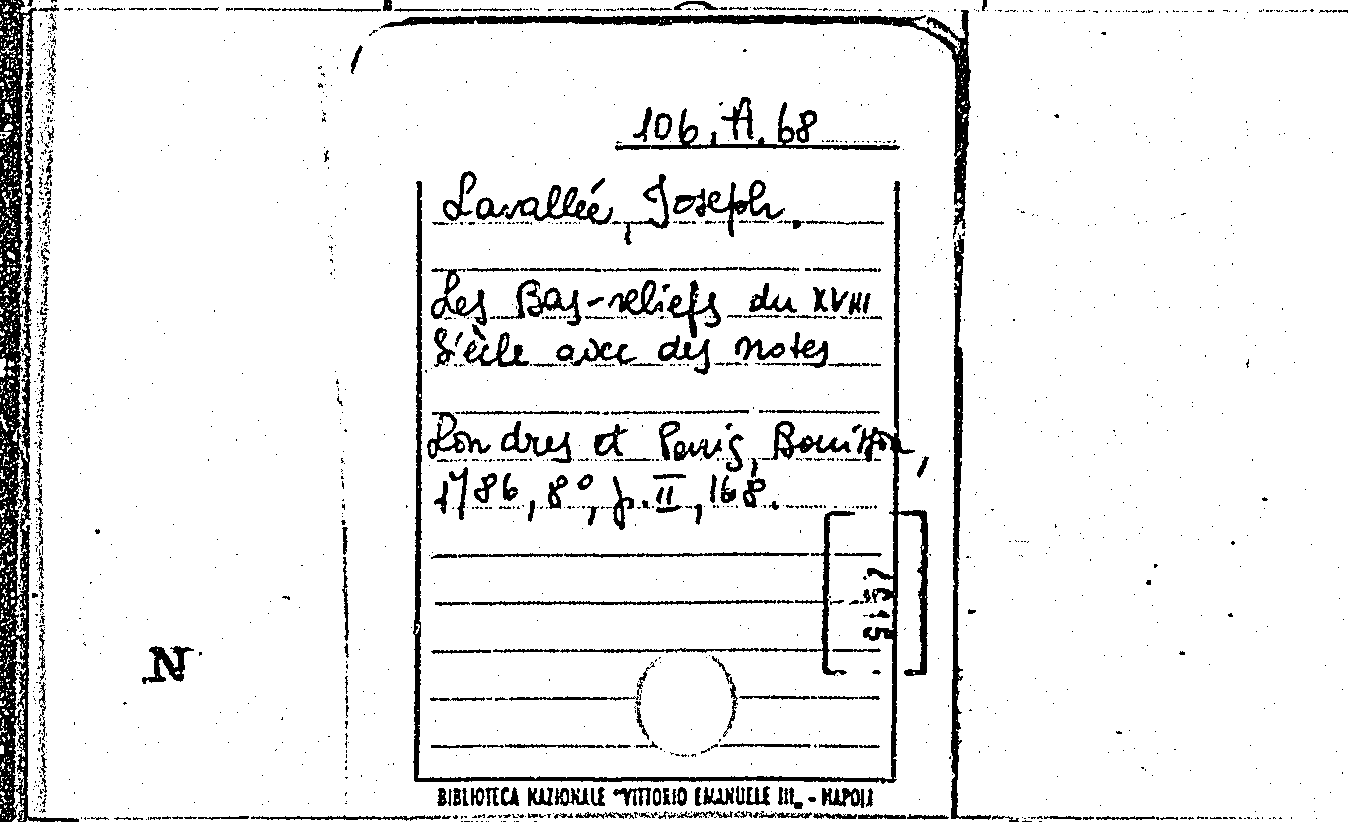 106.A.68
Lavallée, Joseph.
Les Bas-reliefs du XVIII
Siècle avec des notes
Londres et Paris, Bouisson,
1786, 8°, p. II, 168.
N
BIBLIOTECA NAZIONALE "VITTORIO EMANUELE III„ - NAPOLI